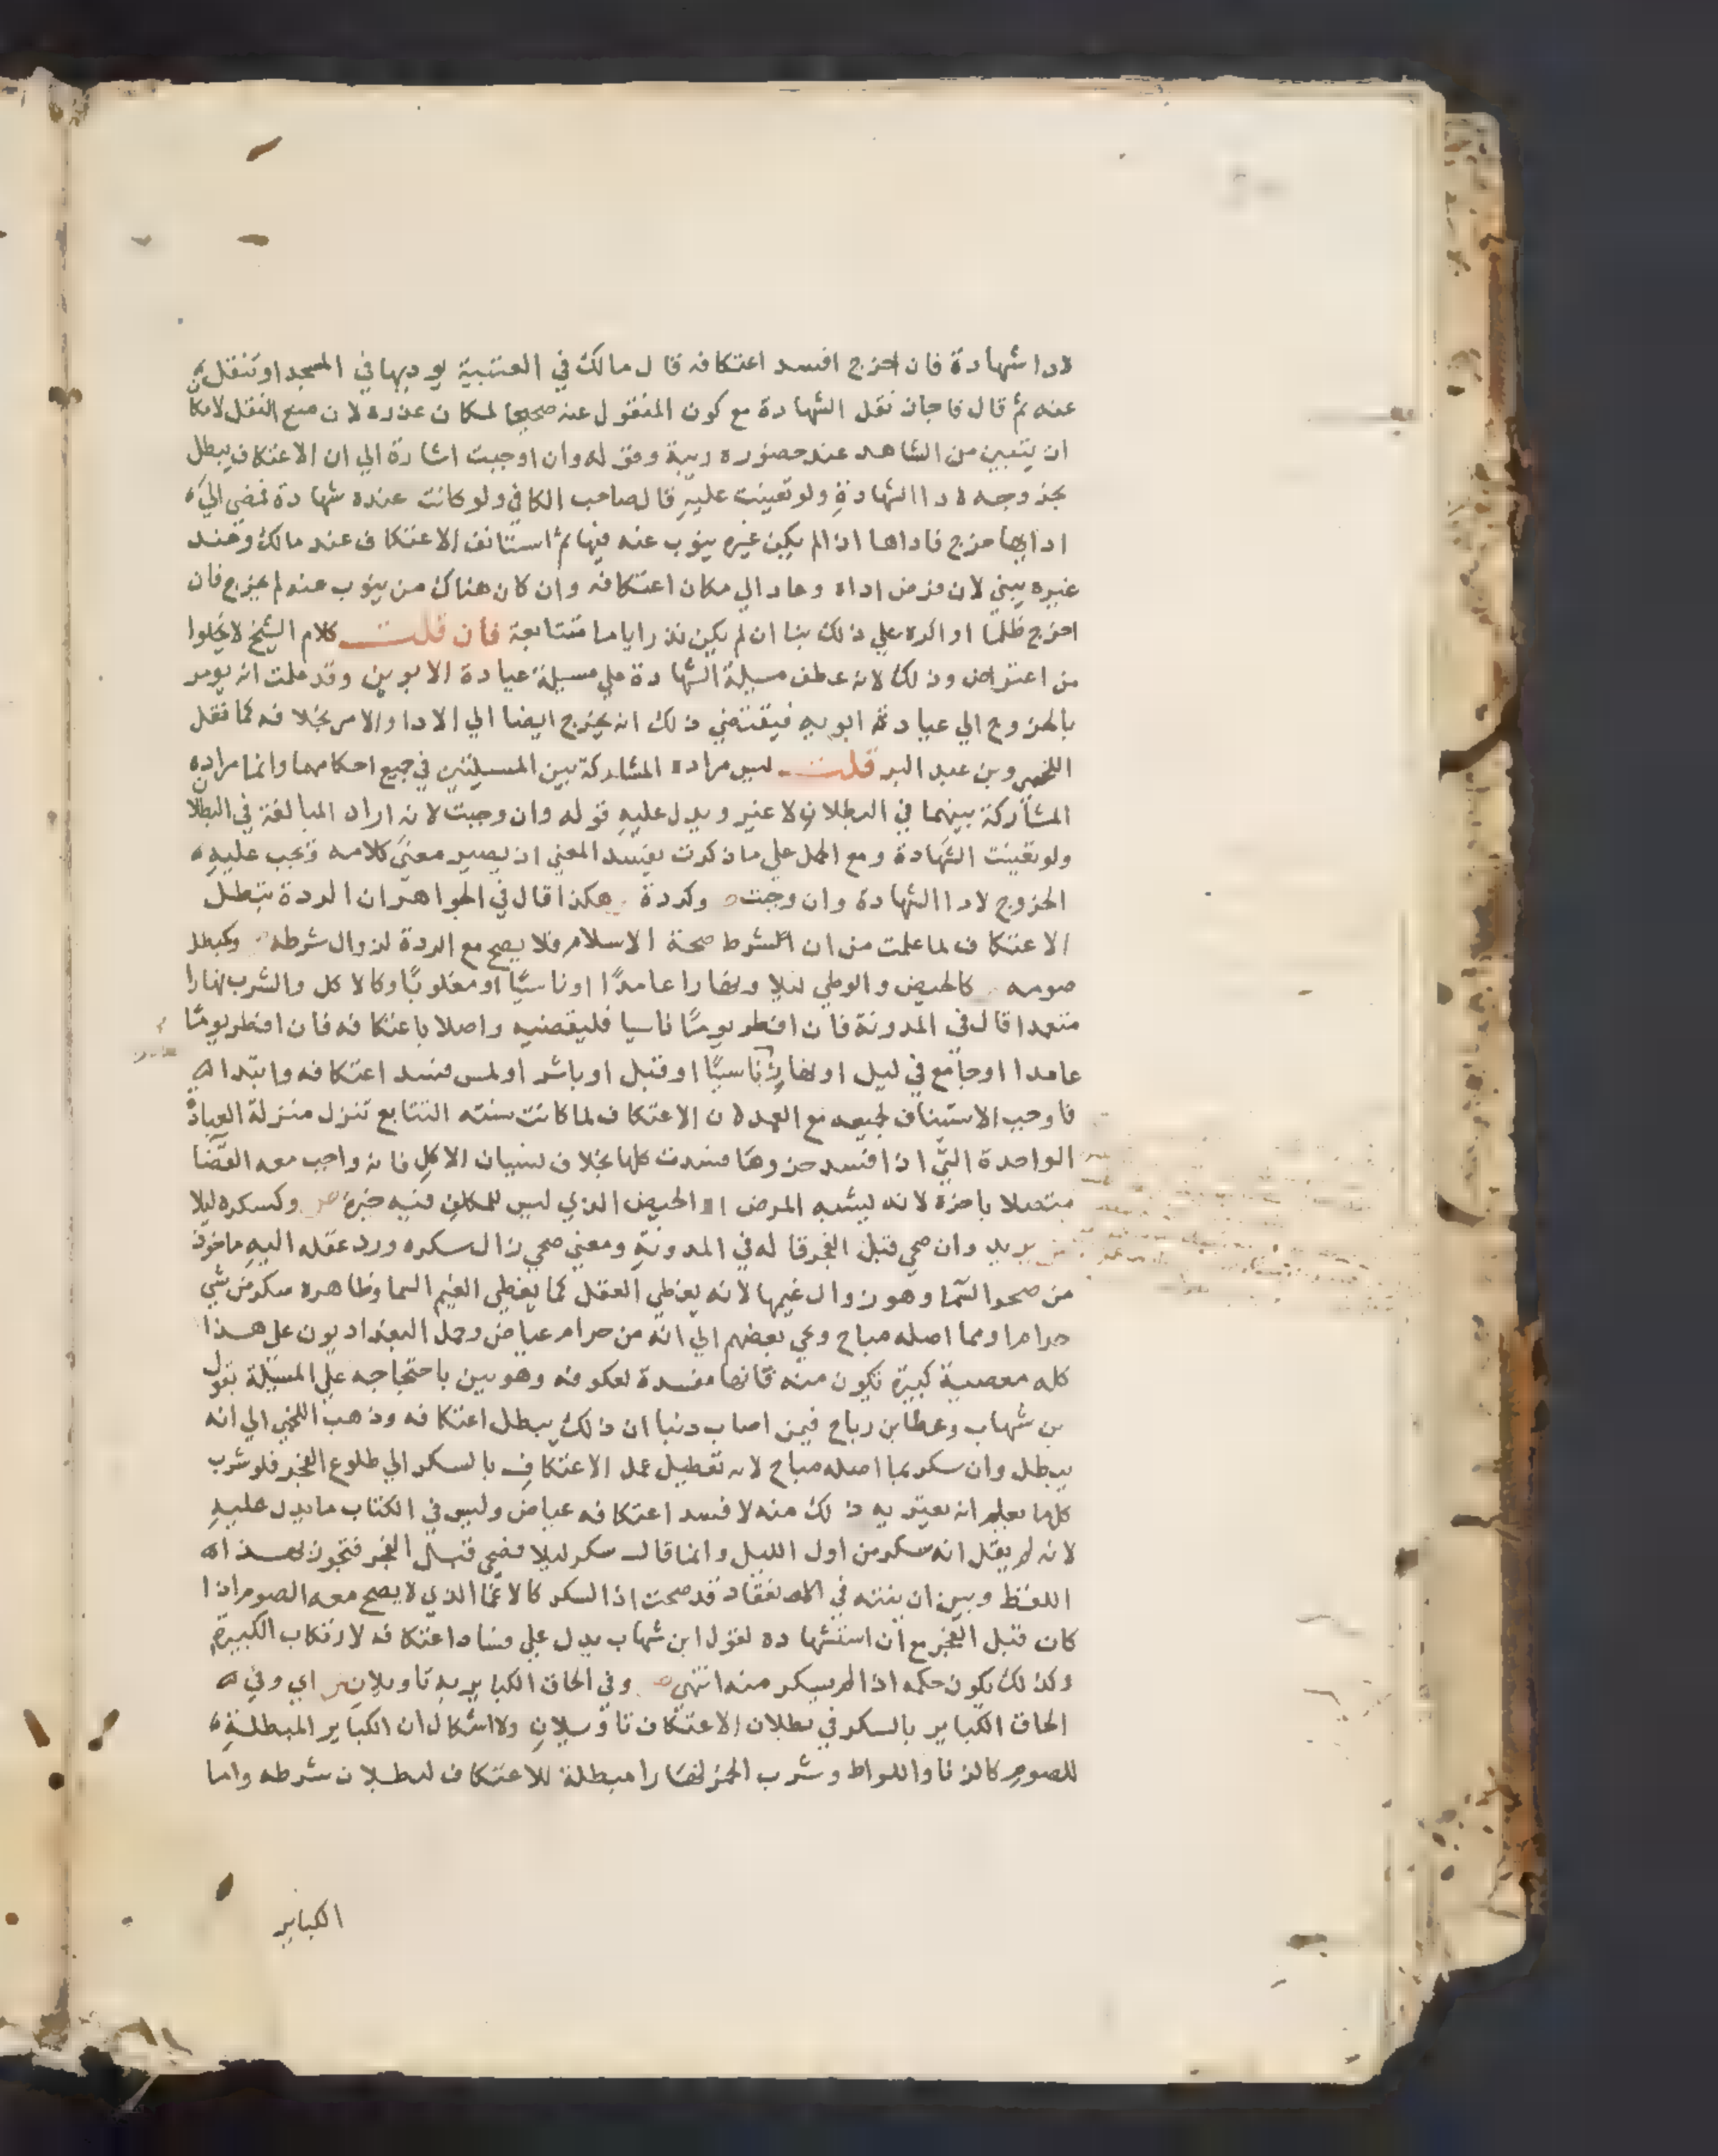 لادا شهادة فان اخرج افسد اعتكافه قال مالك في العتبية يوديها في المسجد او تنقل
عنه ثم قال فاجاز نقل الشهادة مع كون المنقول عنه صحيحا لمكان عذره لان منع النقل لامكا
ان يتبين من الشاهد عند حضوره ريبة وقوله وان اوجبت اشارة الي ان الاعتكاف يبطل
بخروجه لادا الشهادةِ ولو تعينت عليهِ قال صاحب الكافي ولو كانت عنده شهادة فمضي الي
ادايها خرج فاداها اذا لم يكن غيره ينوب عنه فيها ثم استانف الاعتكاف عند مالك وعند
غيره يبني لان فرض اداه وعاد الي مكان اعتكافه وان كان هناك من ينوب عنه لم يخرج فان
اخرج ظلما او اكره علي ذلك بنا ان لم يكن نذر اياما متتابعة فان قلت كلام الشيخ لا يخلوا
من اعتراض وذلك لانه عطف مسيلة الشهادة علي مسيلة عيادة الابوين وقد علمت انه يومر
بالخروج الي عيادة ابويه فيقتضي ذلك انه يخرج ايضا الي الادا والامر بخلافه كما نقل
اللخمي وبن عبد البر قلت ليس مراده المشاركة بين المسيلتين في جميع احكامهما وانما مراده
المشاركة بينهما في البطلان لا غير ويدل عليهِ قوله وان وجبت لانه اراد المبالغة في البطلان
ولو تعينت الشهادة ومع الحمل علي ما ذكرت يفسد المعني اذ يصير معني كلامه وتجب عليهِ
الخروج لادا الشهادة وان وجبت وكردة هكذا قال في الجواهر ان الردة تبطل
الاعتكاف لما علمت من ان الشرط صحة الاسلام فلا يصح مع الردة لزوال شرطه وكبطل
صومه كالحيض والوطي ليلا ونهارا عامدًا او ناسيًا او مغلوبًا وكالاكل والشرب نهارا
متعمدا قال في المدونة فان افطر يومًا ناسيا فليقضيه واصلا باعتكافه فان افطر يومًا
عامدا او جامع في ليل او نهارٍ ناسيًا او قبل او باشر او لمس فسد اعتكافه وابتداه
فاوجب الاستيناف لجميعه مع العمد لان الاعتكاف لما كانت سنته التتابع تنزل منزلة العبادة
الواحدة التي اذا فسد جزوها فسدت كلها بخلاف نسيان الاكل فانه واجب معه القضا
متصلا باخره لانه يشبه المرض او الحيض الذي ليس للمكلف فيه خيرة وكسكره ليلا
يريد وان صحي قبل الفجر قاله في المدونةِ ومعني صحي زال سكره ورد عقله اليهِ ماخوذ
من صحو السما وهو زوال غيمها لانه يغطي العقل كما يغطي الغيم السما وظاهره سكر من شي
حراما او مما اصله مباح ونحي بعضهم الي انه من حرام عياض وحمل البغداديون علي هذا
كله معصية كبيرة تكون منه فانها مفسدة لعكوفه وهو بين باحتجاجه علي المسيلة بقول
بن شهاب وعطا بن رباح فيمن اصاب ذنبا ان ذلك يبطل اعتكافه وذهب اللخمي الي انه
يبطل وان سكر بما اصله مباح لانه تعطيل عمل الاعتكاف بالسكر الي طلوع الفجر فلو شرب
كل ما يعلم انه يعتريه ذلك منه لا فسد اعتكافه عياض وليس في الكتاب ما يدل عليهِ
لانه لم يقل انه سكر من اول الليل وانما قال سكر ليلا فصحي قبل الفجر فتجوز لهذا
اللفظ وبين ان بنته في الانعقاد قد صحت اذ السكر كالاغما الذي لا يصح معه الصوم اذا
كان قبل الفجر مع ان استشهاده لقول ابن شهاب يدل علي فساد اعتكافه لارتكاب الكبيرة
وكذلك يكون حكمه اذا لم يسكر منه انتهي وفي الحاق الكباير به تاويلان اي وفي
الحاق الكباير بالسكر في بطلان الاعتكاف تاويلانِ ولا اشكال ان الكباير المبطلةِ
للصوم كالزنا واللواط وشرب الخمر نهارا مبطلة للاعتكاف لبطلان شرطه واما
الكباير